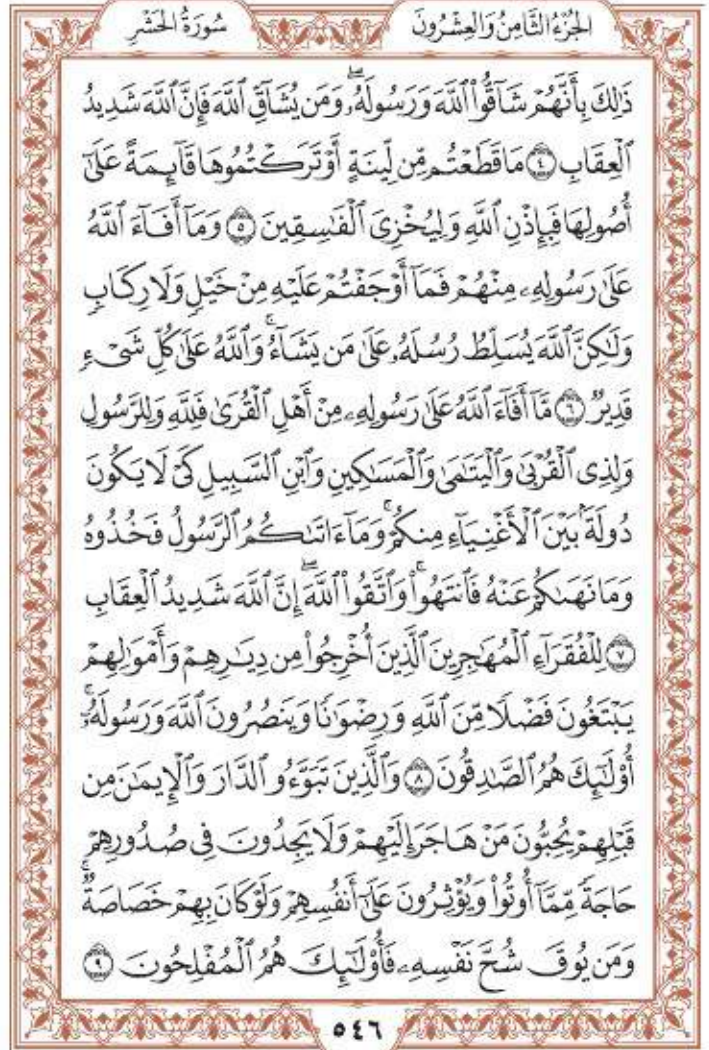 الجُزْءُ الثَّامِنُ وَالعِشْرُونَ سُورَةُ الحَشْرِ
ذَٰلِكَ بِأَنَّهُمْ شَآقُّوا۟ ٱللَّهَ وَرَسُولَهُۥۖ وَمَن يُشَآقِّ ٱللَّهَ فَإِنَّ ٱللَّهَ شَدِيدُ
ٱلْعِقَابِ ٤ مَا قَطَعْتُم مِّن لِّينَةٍ أَوْ تَرَكْتُمُوهَا قَآئِمَةً عَلَىٰٓ
أُصُولِهَا فَبِإِذْنِ ٱللَّهِ وَلِيُخْزِىَ ٱلْفَٰسِقِينَ ٥ وَمَآ أَفَآءَ ٱللَّهُ
عَلَىٰ رَسُولِهِۦ مِنْهُمْ فَمَآ أَوْجَفْتُمْ عَلَيْهِ مِنْ خَيْلٍ وَلَا رِكَابٍ
وَلَٰكِنَّ ٱللَّهَ يُسَلِّطُ رُسُلَهُۥ عَلَىٰ مَن يَشَآءُۚ وَٱللَّهُ عَلَىٰ كُلِّ شَىْءٍ
قَدِيرٌ ٦ مَّآ أَفَآءَ ٱللَّهُ عَلَىٰ رَسُولِهِۦ مِنْ أَهْلِ ٱلْقُرَىٰ فَلِلَّهِ وَلِلرَّسُولِ
وَلِذِى ٱلْقُرْبَىٰ وَٱلْيَتَٰمَىٰ وَٱلْمَسَٰكِينِ وَٱبْنِ ٱلسَّبِيلِ كَىْ لَا يَكُونَ
دُولَةًۢ بَيْنَ ٱلْأَغْنِيَآءِ مِنكُمْۚ وَمَآ ءَاتَىٰكُمُ ٱلرَّسُولُ فَخُذُوهُ
وَمَا نَهَىٰكُمْ عَنْهُ فَٱنتَهُوا۟ۚ وَٱتَّقُوا۟ ٱللَّهَۖ إِنَّ ٱللَّهَ شَدِيدُ ٱلْعِقَابِ
٧ لِلْفُقَرَآءِ ٱلْمُهَٰجِرِينَ ٱلَّذِينَ أُخْرِجُوا۟ مِن دِيَٰرِهِمْ وَأَمْوَٰلِهِمْ
يَبْتَغُونَ فَضْلًا مِّنَ ٱللَّهِ وَرِضْوَٰنًا وَيَنصُرُونَ ٱللَّهَ وَرَسُولَهُۥٓۚ
أُو۟لَٰٓئِكَ هُمُ ٱلصَّٰدِقُونَ ٨ وَٱلَّذِينَ تَبَوَّءُو ٱلدَّارَ وَٱلْإِيمَٰنَ مِن
قَبْلِهِمْ يُحِبُّونَ مَنْ هَاجَرَ إِلَيْهِمْ وَلَا يَجِدُونَ فِى صُدُورِهِمْ
حَاجَةً مِّمَّآ أُوتُوا۟ وَيُؤْثِرُونَ عَلَىٰٓ أَنفُسِهِمْ وَلَوْ كَانَ بِهِمْ خَصَاصَةٌۚ
وَمَن يُوقَ شُحَّ نَفْسِهِۦ فَأُو۟لَٰٓئِكَ هُمُ ٱلْمُفْلِحُونَ ٩
٥٤٦